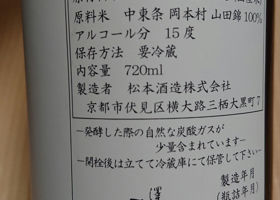 原料米 中東条 岡本村 山田錦100%
アルコール分 15度
保存方法 要冷蔵
内容量 720ml
製造者 松本酒造株式会社
京都市伏見区横大路三栖大黒町7
―発酵した際の自然な炭酸ガスが
少量含まれています―
―開栓後は立てて冷蔵庫にて保管して下さい―
製造年月
(瓶詰年月)
澤